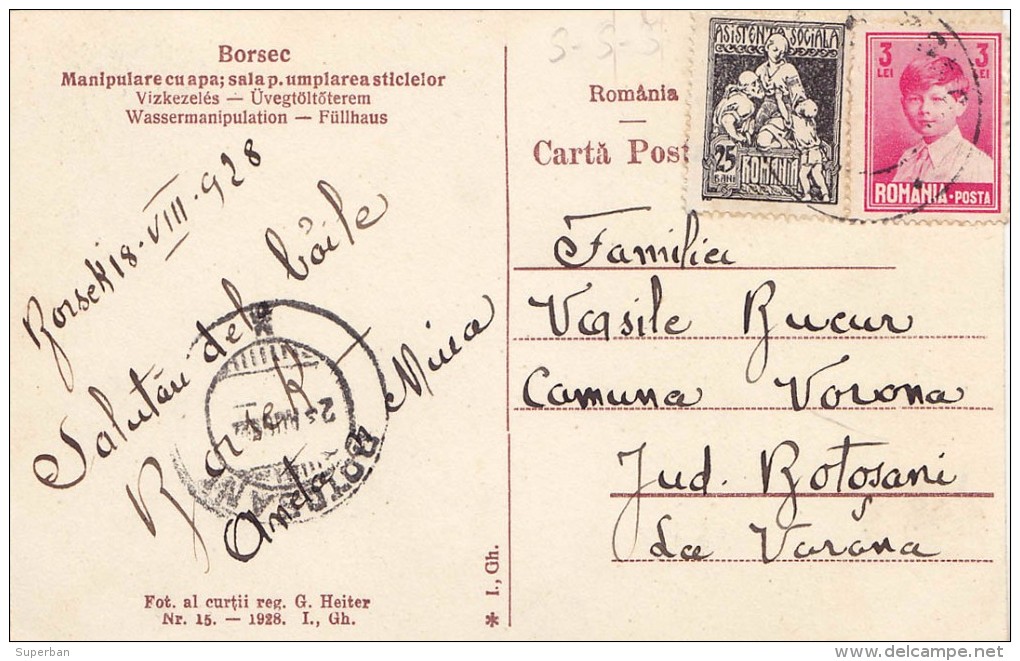 Borsec
Manipulare cu apa; sala p. umplarea sticlelor
Vizkezelés — Üvegtöltőterem
Wassermanipulation — Füllhaus
Borsek 18-VIII-928
Salutări dela băile
Borsek
Anda Minea
Fot. al curții reg. G. Heiter
Nr. 15. — 1928. I., Gh.
* I., Gh.
S-S-S
România
Cartă Post
ASISTENȚA SOCIALĂ
25
BANI
ROMANIA
3
LEI
3
LEI
ROMANIA·POSTA
Familia
Vasile Bucur
Comuna Vorona
Jud. Botoșani
La Varona
Superban
delcampe.net